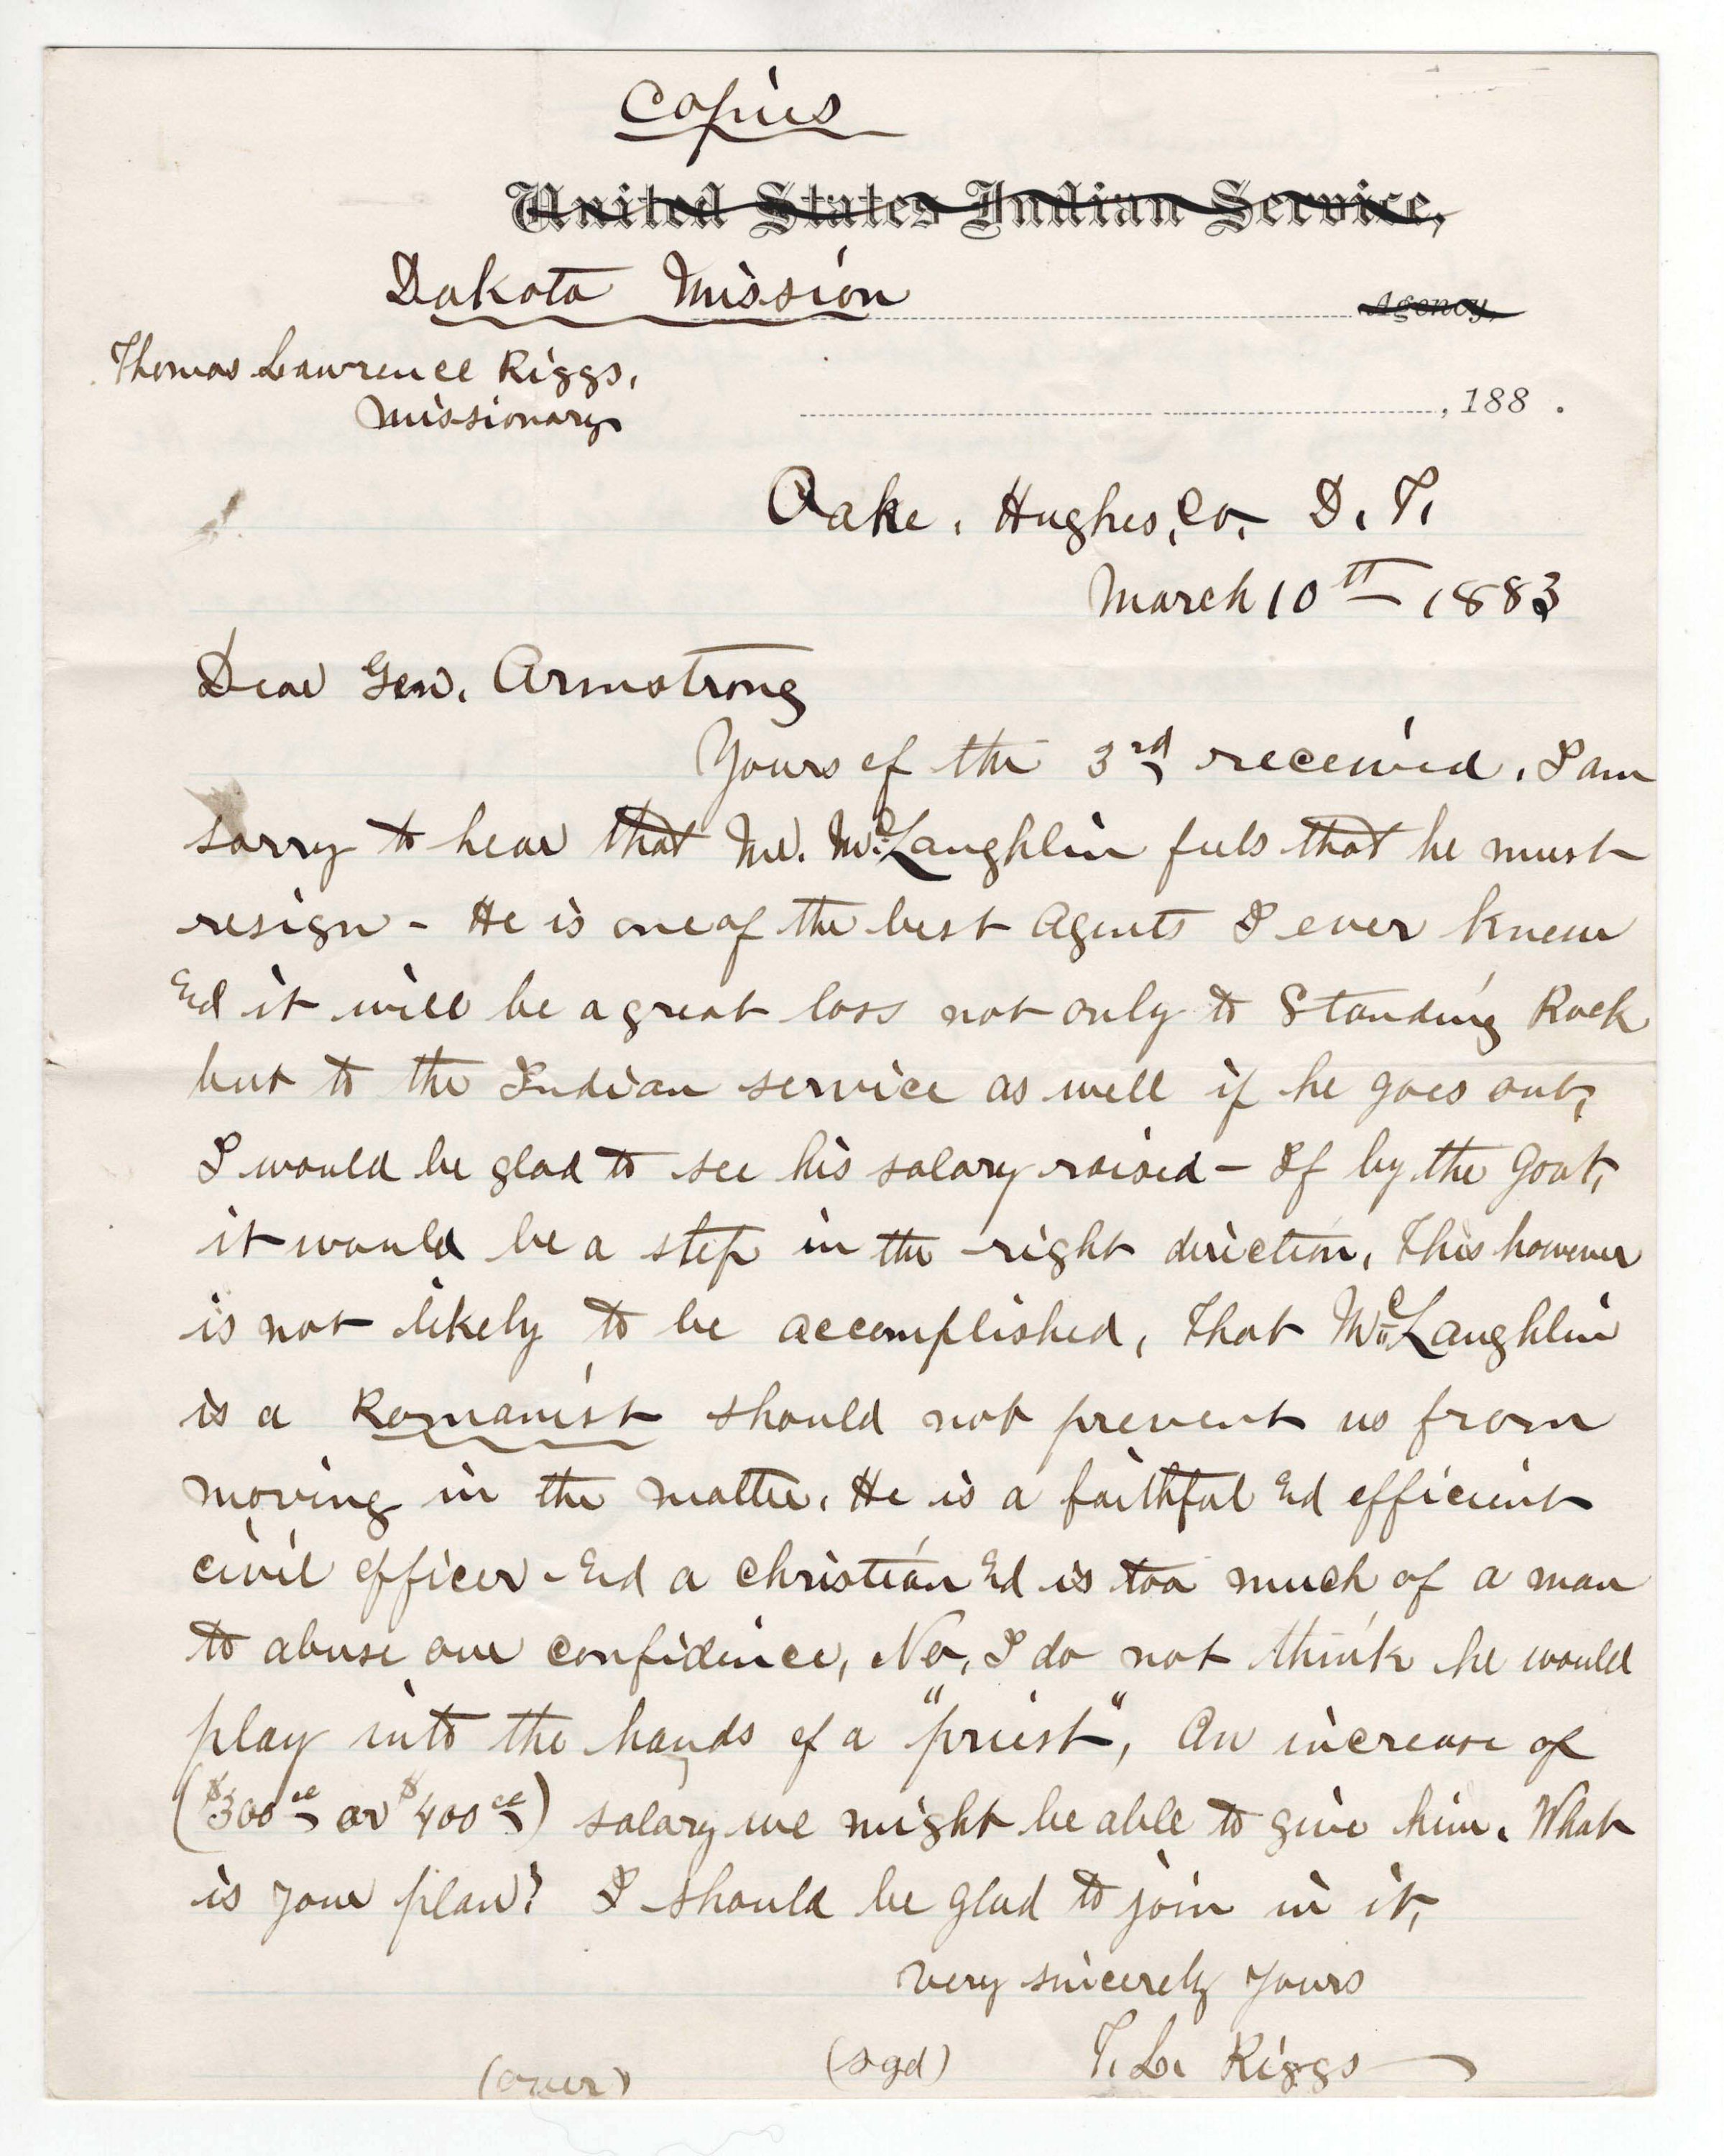 Copies
United States Indian Service,
Dakota Mission Agency,
Thomas Lawrence Riggs,
Missionary
, 188 .
Oahe, Hughes, Co, D. T.
March 10th 1883
Dear Gen. Armstrong
Yours of the 3rd received. I am
sorry to hear that Mr. McLaughlin feels that he must
resign - He is one of the best Agents I ever knew
& it will be a great loss not only to Standing Rock
but to the Indian service as well if he goes out.
I would be glad to see his salary raised - If by the Govt,
it would be a step in the right direction. This however
is not likely to be accomplished, That McLaughlin
is a Romanist should not prevent us from
moving in the matter. He is a faithful & efficient
civil officer - & a christian & is too much of a man
to abuse our confidence, No, I do not think he would
play into the hands of a "priest", An increase of
($300 or $400) salary we might be able to give him. What
is your plan? I should be glad to join in it,
very sincerely yours
(sgd) T. L. Riggs
(over)